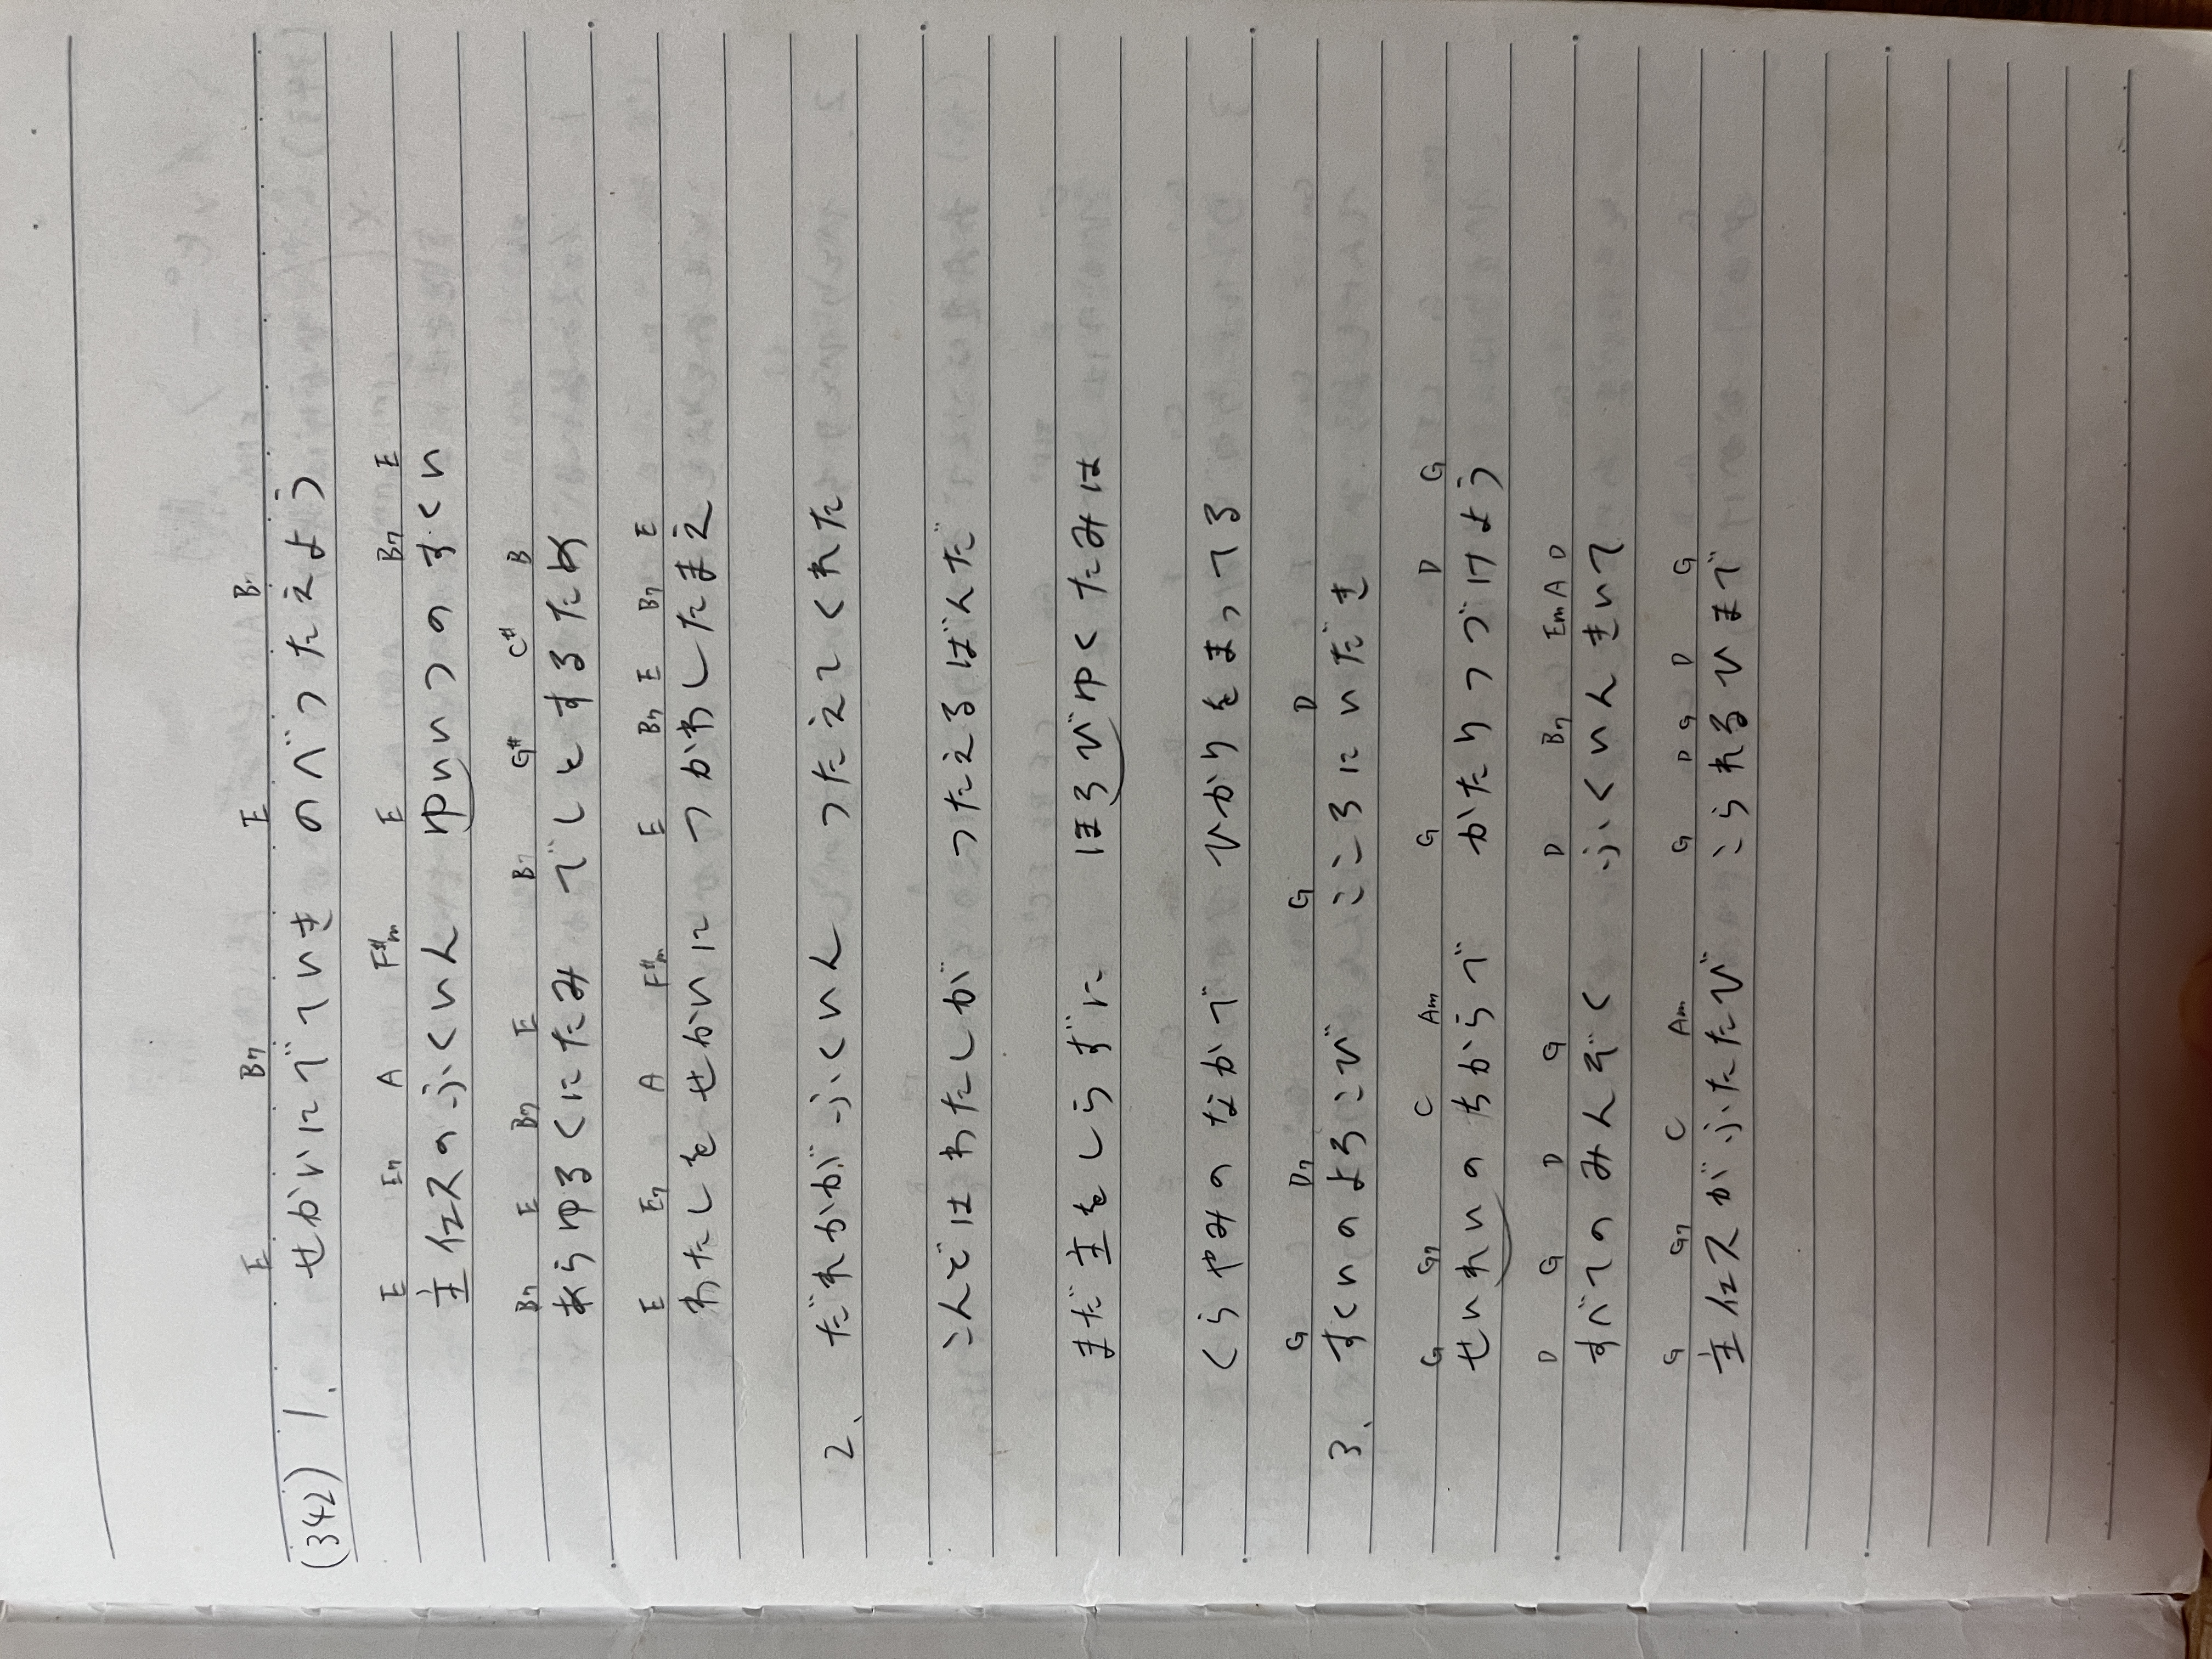 E B7 E B7
(342) 1、せかいにでていき のべつたえよう
E E7 A F#m E B7 E
主イエスのふくいん ゆいつのすくい
B7 E B7 E B7 G# C# B
あらゆるくにたみ でしとするため
E E7 A F#m E B7 E B7 E
わたしを せかいに つかわしたまえ
2、だれかがふくいん つたえてくれた
こんどはわたしが つたえるばんだ
まだ主をしらずに ほろびゆくたみは
くらやみのなかで ひかりをまってる
G D7 G D
3、すくいのよろこび こころにいだき
G G7 C Am G D G
せいれいのちからで かたりつづけよう
D G D G D B7 Em A D
すべてのみんぞく ふくいんきいて
G G7 C Am G D G D G
主イエスがふたたび こられるひまで